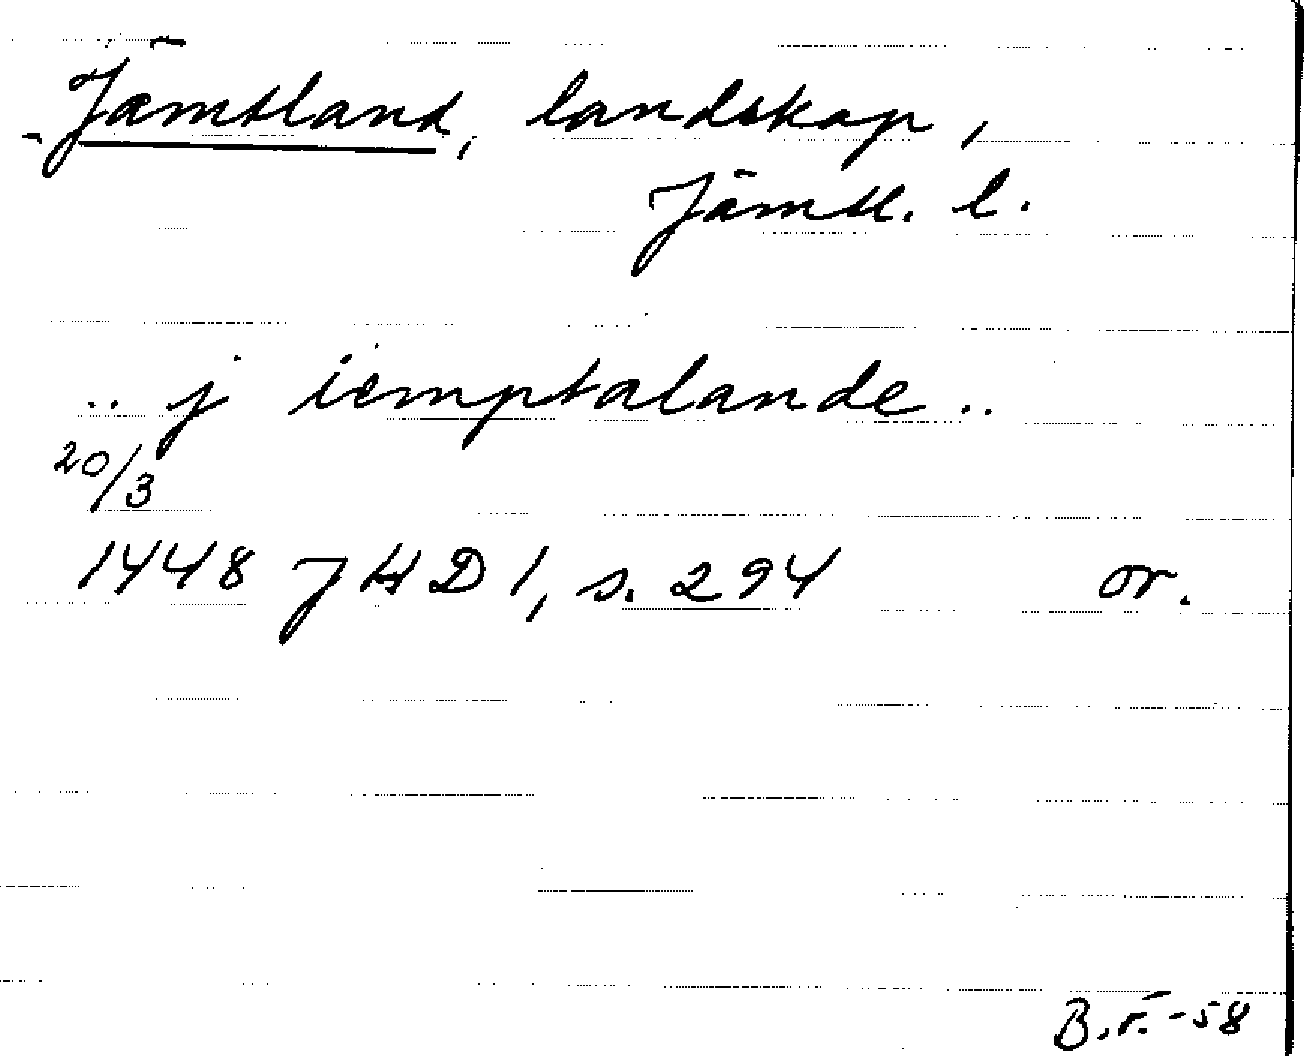 Jämtland, landskap,
Jämtl. l.
.. j iemptalande ..
20/3
1448 JHD 1, s. 294 or.
B.r. -58